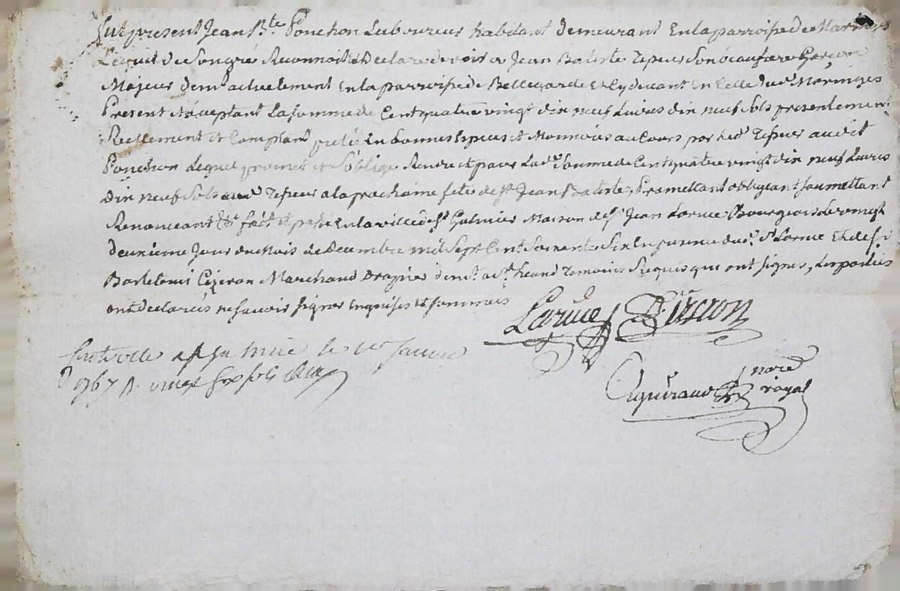 Fut present Jean Bte Ponchon Laboureur habitant demeurant En la parroisse de
Lequel de Son gré Reconnoit & Declare devoir a Jean Batiste Tepeur Son beaufrere Garcon
Majeur demt actuellement En la parroisse de Bellegarde Et Cy devant En Celle de Maringes
Present & acceptant La Somme de Cent quatre vingt dix neuf Livres dix neuf Sols presentement
Reellement et Comptant En bonnes Especes & Monnoies au Cours par led. Tepeur audit
Ponchon Lequel promet et S'oblige Rendre et paier Lad. Somme de Cent quatre vingt dix neuf Livres
dix neuf Sols aud. Tepeur a la prochaine fete de St Jean Batiste Promettant obligeant Soumettant
Renonceant &c fait et passé En la ville de St Galmier Maison de Sr Jean Larue Bourgeois Le vingt
deuxième Jour du Mois de Decembre mil Sept Cent Soixante Six En presence dud. Sr Larue Et de Sr
Bartelemi Marchand Drapier demt aud. St Temoins Requis qui ont Signes, Les parties
ont declarées ne Scavoir Signer Enquises et Sommées
Larue
nore
royal
1767